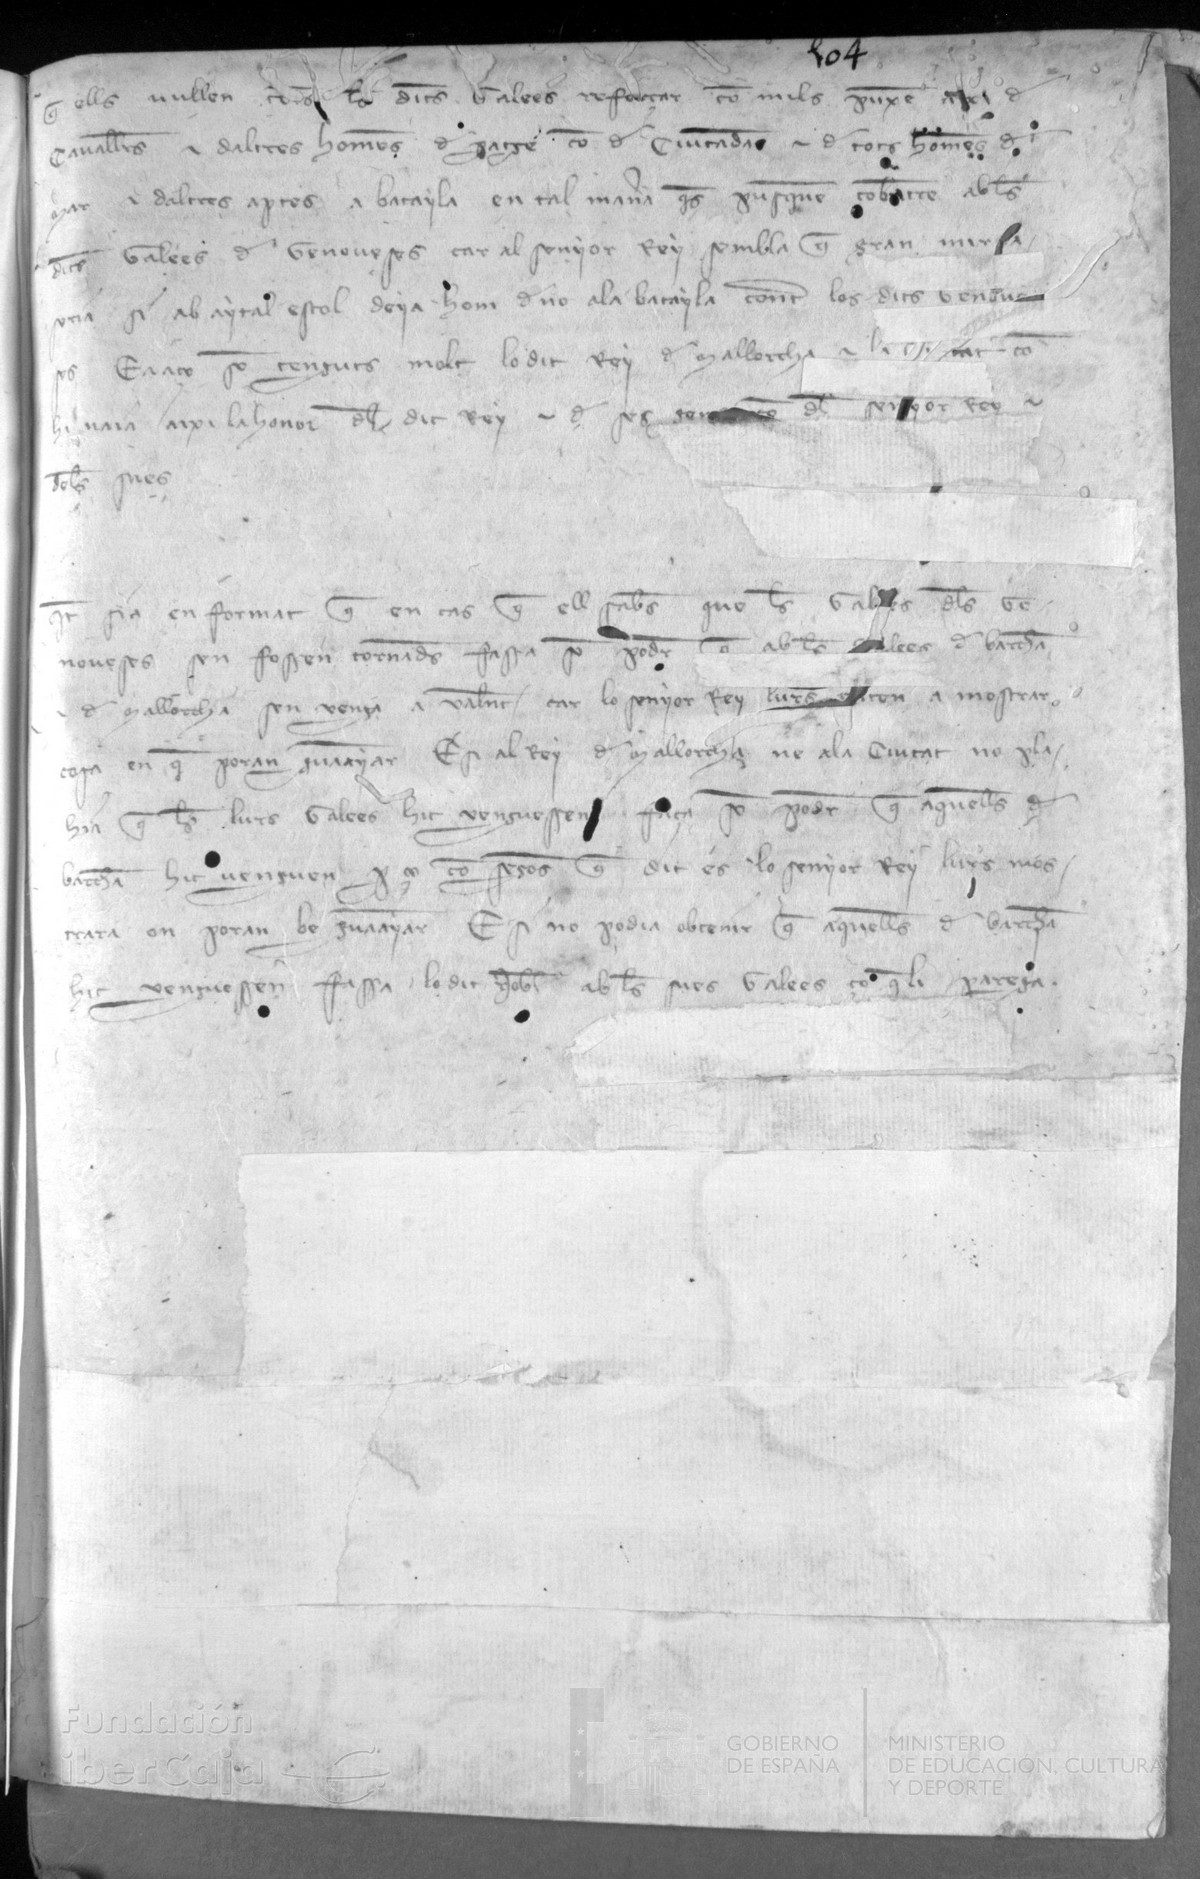 104
q̄ ells vullen totes les dits Galees refforçar co mils puxe axi d
Cavallers ⁊ daltres homes d paratge co d Ciutadas ⁊ d tots homes d
mar ⁊ daltres aptes a batayla en tal mana̅ q̄s pusque̅ cobatre ab ls
dits Galees d Genoueses car al senyor Rey sembla q̄ gran minua
seria si ab aytal estol deya hom d no a la batayla cont los dits Genoue
ses E a aço so tenguts molt lo dit Rey d Mallorcha ⁊ la Ciutat co
hi vaia axi la honor dl dit Rey ⁊ d ses gens co dl senyor Rey ⁊
dels sues
It sia enformat q̄ en cas q̄ ell sabes que ls Galees dls Ge
noueses sen fossen tornads fassa so podr q̄ ab ls Galees d barchna
⁊ d Mallorcha sen venga a Valenc car lo senyor Rey lurs enten a mostrar
cosa en q̄ poran guaayar E si al Rey d Mallorcha ne a la Ciutat no pla
hia q̄ ls lurs Galees hic venguessen faça so podr q̄ aquells d
barchna hic venguen p q̄ co segos q̄ dit es lo senyor Rey lurs mos
trara on poran be guaayar E si no podia obtenir q̄ aquells d barchna
hic venguessen fassa lo dit noble ab ls sues Galees ço q̄ li parega.
Fundación
iberCaja
GOBIERNO
DE ESPAÑA
MINISTERIO
DE EDUCACIÓN, CULTURA
Y DEPORTE